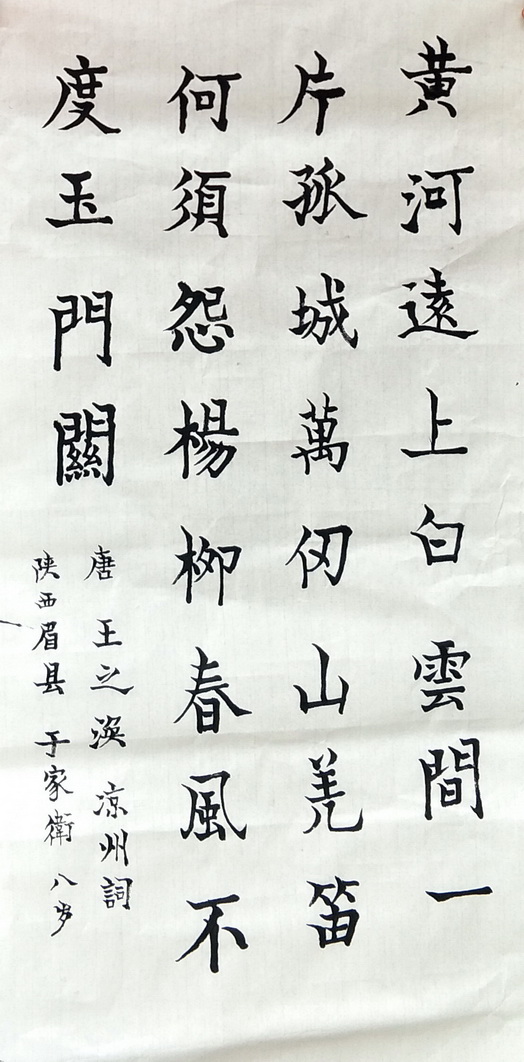 黃河遠上白雲間一
片孤城萬仞山羌笛
何須怨楊柳春風不
度玉門關
唐王之渙凉州詞
陕西眉县于家衛八岁